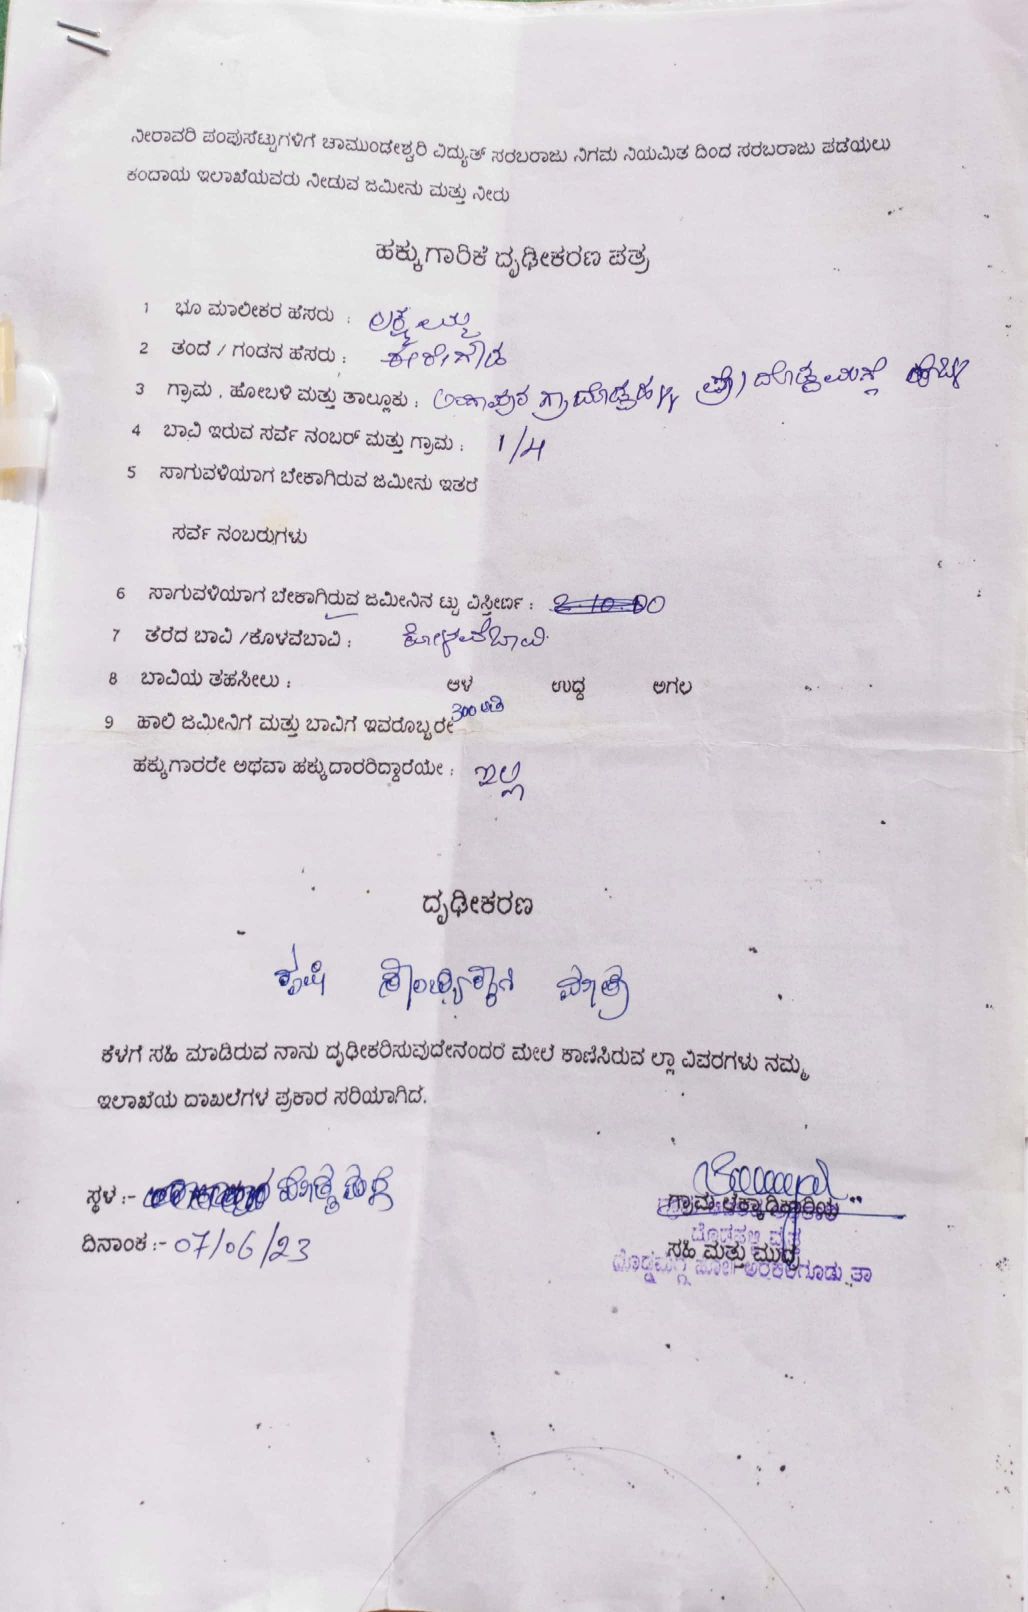 ನೀರಾವರಿ ಪಂಪುಸೆಟ್ಟುಗಳಿಗೆ ಚಾಮುಂಡೇಶ್ವರಿ ವಿದ್ಯುತ್ ಸರಬರಾಜು ನಿಗಮ ನಿಯಮಿತ ದಿಂದ ಸರಬರಾಜು ಪಡೆಯಲು
ಕಂದಾಯ ಇಲಾಖೆಯವರು ನೀಡುವ ಜಮೀನು ಮತ್ತು ನೀರು
ಹಕ್ಕುಗಾರಿಕೆ ದೃಢೀಕರಣ ಪತ್ರ
1 ಭೂ ಮಾಲೀಕರ ಹೆಸರು :
2 ತಂದೆ / ಗಂಡನ ಹೆಸರು :
3 ಗ್ರಾಮ , ಹೋಬಳಿ ಮತ್ತು ತಾಲ್ಲೂಕು :
4 ಬಾವಿ ಇರುವ ಸರ್ವೆ ನಂಬರ್ ಮತ್ತು ಗ್ರಾಮ : 1/4
5 ಸಾಗುವಳಿಯಾಗ ಬೇಕಾಗಿರುವ ಜಮೀನು ಇತರೆ
ಸರ್ವೆ ನಂಬರುಗಳು
6 ಸಾಗುವಳಿಯಾಗ ಬೇಕಾಗಿರುವ ಜಮೀನಿನ ಟ್ಟು ವಿಸ್ತೀರ್ಣ :
7 ತೆರೆದ ಬಾವಿ /ಕೊಳವೆಬಾವಿ : ಕೊಳವೆಬಾವಿ
8 ಬಾವಿಯ ತಹಸೀಲು : ಆಳ ಉದ್ದ ಅಗಲ
300 ಅಡಿ
9 ಹಾಲಿ ಜಮೀನಿಗೆ ಮತ್ತು ಬಾವಿಗೆ ಇವರೊಬ್ಬರೇ
ಹಕ್ಕುಗಾರರೇ ಅಥವಾ ಹಕ್ಕುದಾರರಿದ್ದಾರೆಯೇ : ಇಲ್ಲ
ದೃಢೀಕರಣ
ಕೃಷಿ ಮಾತ್ರ
ಕೆಳಗೆ ಸಹಿ ಮಾಡಿರುವ ನಾನು ದೃಢೀಕರಿಸುವುದೇನೆಂದರೆ ಮೇಲೆ ಕಾಣಿಸಿರುವ ಲ್ಲಾ ವಿವರಗಳು ನಮ್ಮ
ಇಲಾಖೆಯ ದಾಖಲೆಗಳ ಪ್ರಕಾರ ಸರಿಯಾಗಿದೆ.
ಸ್ಥಳ :- ದೊಡ್ಡಮಗ್ಗೆ
ದಿನಾಂಕ :- 07/06/23
ಸಹಿ ಮತ್ತು ಮುದ್ರೆ
ದೊಡ್ಡಮಗ್ಗೆ ಹೋ॥ ಅರಕಲಗೂಡು ತಾ